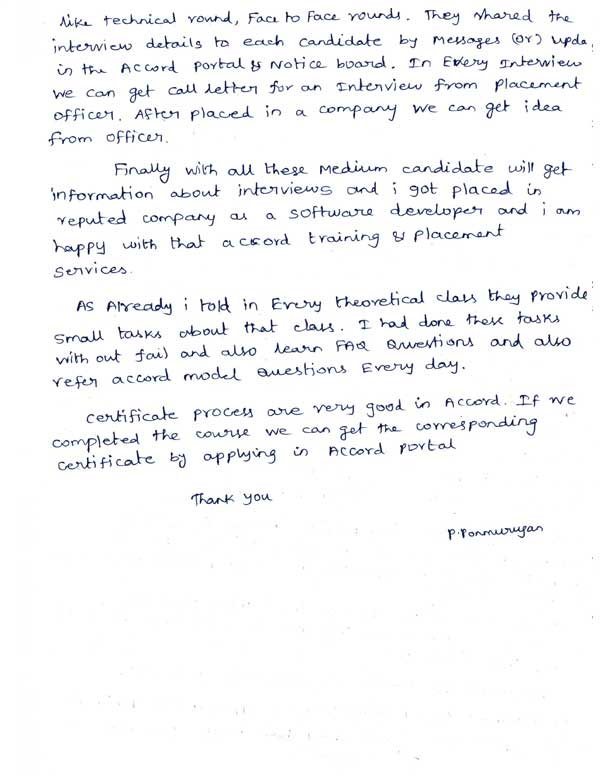 like technical round, Face to Face rounds. They shared the
interview details to each candidate by Messages (or) upda
in the Accord portal & Notice board. In Every Interview
we can get call letter for an Interview from placement
officer. After placed in a company we can get idea
from officer.
Finally with all these Medium candidate will get
information about interviews and i got placed in
reputed company as a software developer and i am
happy with that accord training & placement
services.
As Already i told in Every theoretical class they provide
small tasks about that class. I had done these tasks
with out fail and also learn FAQ Questions and also
refer accord model questions Every day.
certificate process are very good in Accord. If we
completed the course we can get the corresponding
certificate by applying in Accord portal
Thank you
P. Ponmurugan